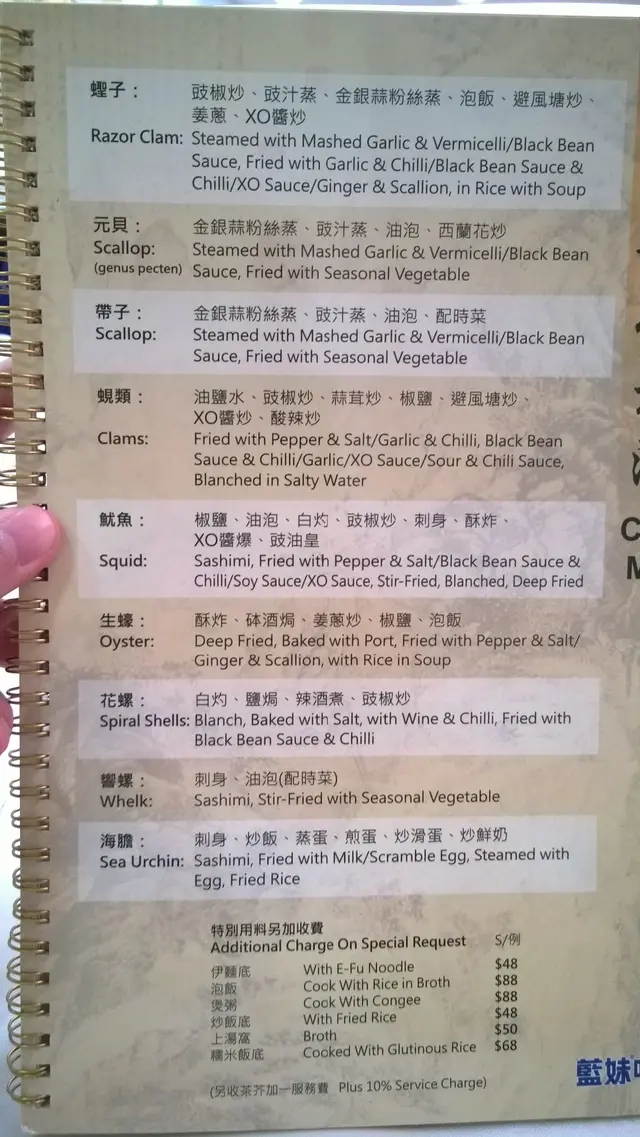 蟶子： 豉椒炒、豉汁蒸、金銀蒜粉絲蒸、泡飯、避風塘炒、
姜蔥、XO醬炒
Razor Clam: Steamed with Mashed Garlic & Vermicelli/Black Bean
Sauce, Fried with Garlic & Chilli/Black Bean Sauce &
Chilli/XO Sauce/Ginger & Scallion, in Rice with Soup
元貝： 金銀蒜粉絲蒸、豉汁蒸、油泡、西蘭花炒
Scallop: Steamed with Mashed Garlic & Vermicelli/Black Bean
(genus pecten) Sauce, Fried with Seasonal Vegetable
帶子： 金銀蒜粉絲蒸、豉汁蒸、油泡、配時菜
Scallop: Steamed with Mashed Garlic & Vermicelli/Black Bean
Sauce, Fried with Seasonal Vegetable
蜆類： 油鹽水、豉椒炒、蒜茸炒、椒鹽、避風塘炒、
XO醬炒、酸辣炒
Clams: Fried with Pepper & Salt/Garlic & Chilli, Black Bean
Sauce & Chilli/Garlic/XO Sauce/Sour & Chili Sauce,
Blanched in Salty Water
魷魚： 椒鹽、油泡、白灼、豉椒炒、刺身、酥炸、
XO醬爆、豉油皇
Squid: Sashimi, Fried with Pepper & Salt/Black Bean Sauce &
Chilli/Soy Sauce/XO Sauce, Stir-Fried, Blanched, Deep Fried
生蠔： 酥炸、砵酒焗、姜蔥炒、椒鹽、泡飯
Oyster: Deep Fried, Baked with Port, Fried with Pepper & Salt/
Ginger & Scallion, with Rice in Soup
花螺： 白灼、鹽焗、辣酒煮、豉椒炒
Spiral Shells: Blanch, Baked with Salt, with Wine & Chilli, Fried with
Black Bean Sauce & Chilli
響螺： 刺身、油泡(配時菜)
Whelk: Sashimi, Stir-Fried with Seasonal Vegetable
海膽： 刺身、炒飯、蒸蛋、煎蛋、炒滑蛋、炒鮮奶
Sea Urchin: Sashimi, Fried with Milk/Scramble Egg, Steamed with
Egg, Fried Rice
特別用料另加收費
Additional Charge On Special Request S/例
伊麵底 With E-Fu Noodle $48
泡飯 Cook With Rice in Broth $88
煲粥 Cook With Congee $88
炒飯底 With Fried Rice $48
上湯窩 Broth $50
糯米飯底 Cooked With Glutinous Rice $68
(另收茶芥加一服務費 Plus 10% Service Charge)
藍妹